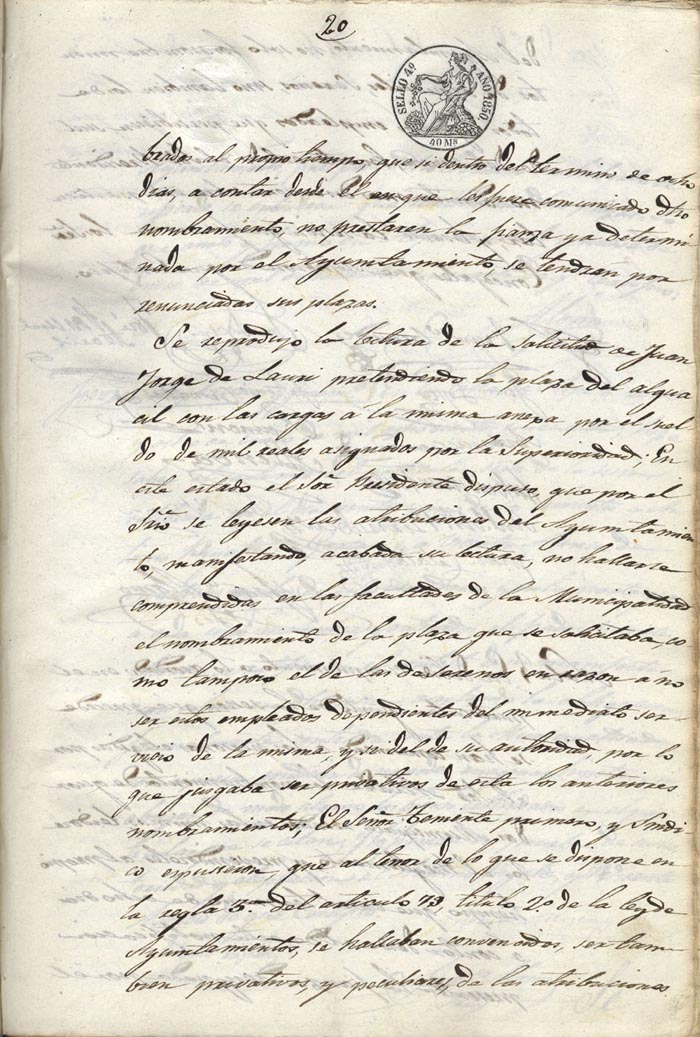 20
SELLO 4º AÑO 1850.
40 Ms
brados al propio tiempo, que si dentro del termino de ocho
dias, a contar desde el en que les fuese comunicado dho
nombramiento, no prestaren la fianza ya determi
nada por el Ayuntamiento, se tendran por
renunciadas sus plazas.
Se reprodujo la lectura de la solicitud de Juan
Jorge de Lauri pretendiendo la plaza del algua
cil con las cargas a la misma anexa por el suel
do de mil reales asignados por la Superioridad; En
este estado el Sor. Presidente dispuso, que por el
Srio se leyesen las atribuciones del Ayuntamien
to, manifestando, acabada su lectura, no hallarse
comprendidas en las facultades de la Municipalidad
el nombramiento de la plaza que se solicitaba, co
mo tampoco el de las de serenos en razon a no
ser estos empleados dependientes del inmediato ser
vicio de la misma, y si del de su autoridad, por lo
que juzgaba ser privativos de esta los anteriores
nombramientos; El Señor Teniente primero, y Sindi
co espusieron, que al tenor de lo que se dispone en
la regla 5ª del articulo 73, titulo 2º de la ley de
Ayuntamientos, se hallaban convencidos, ser tam
bien privativos, y peculiares, de las atribuciones